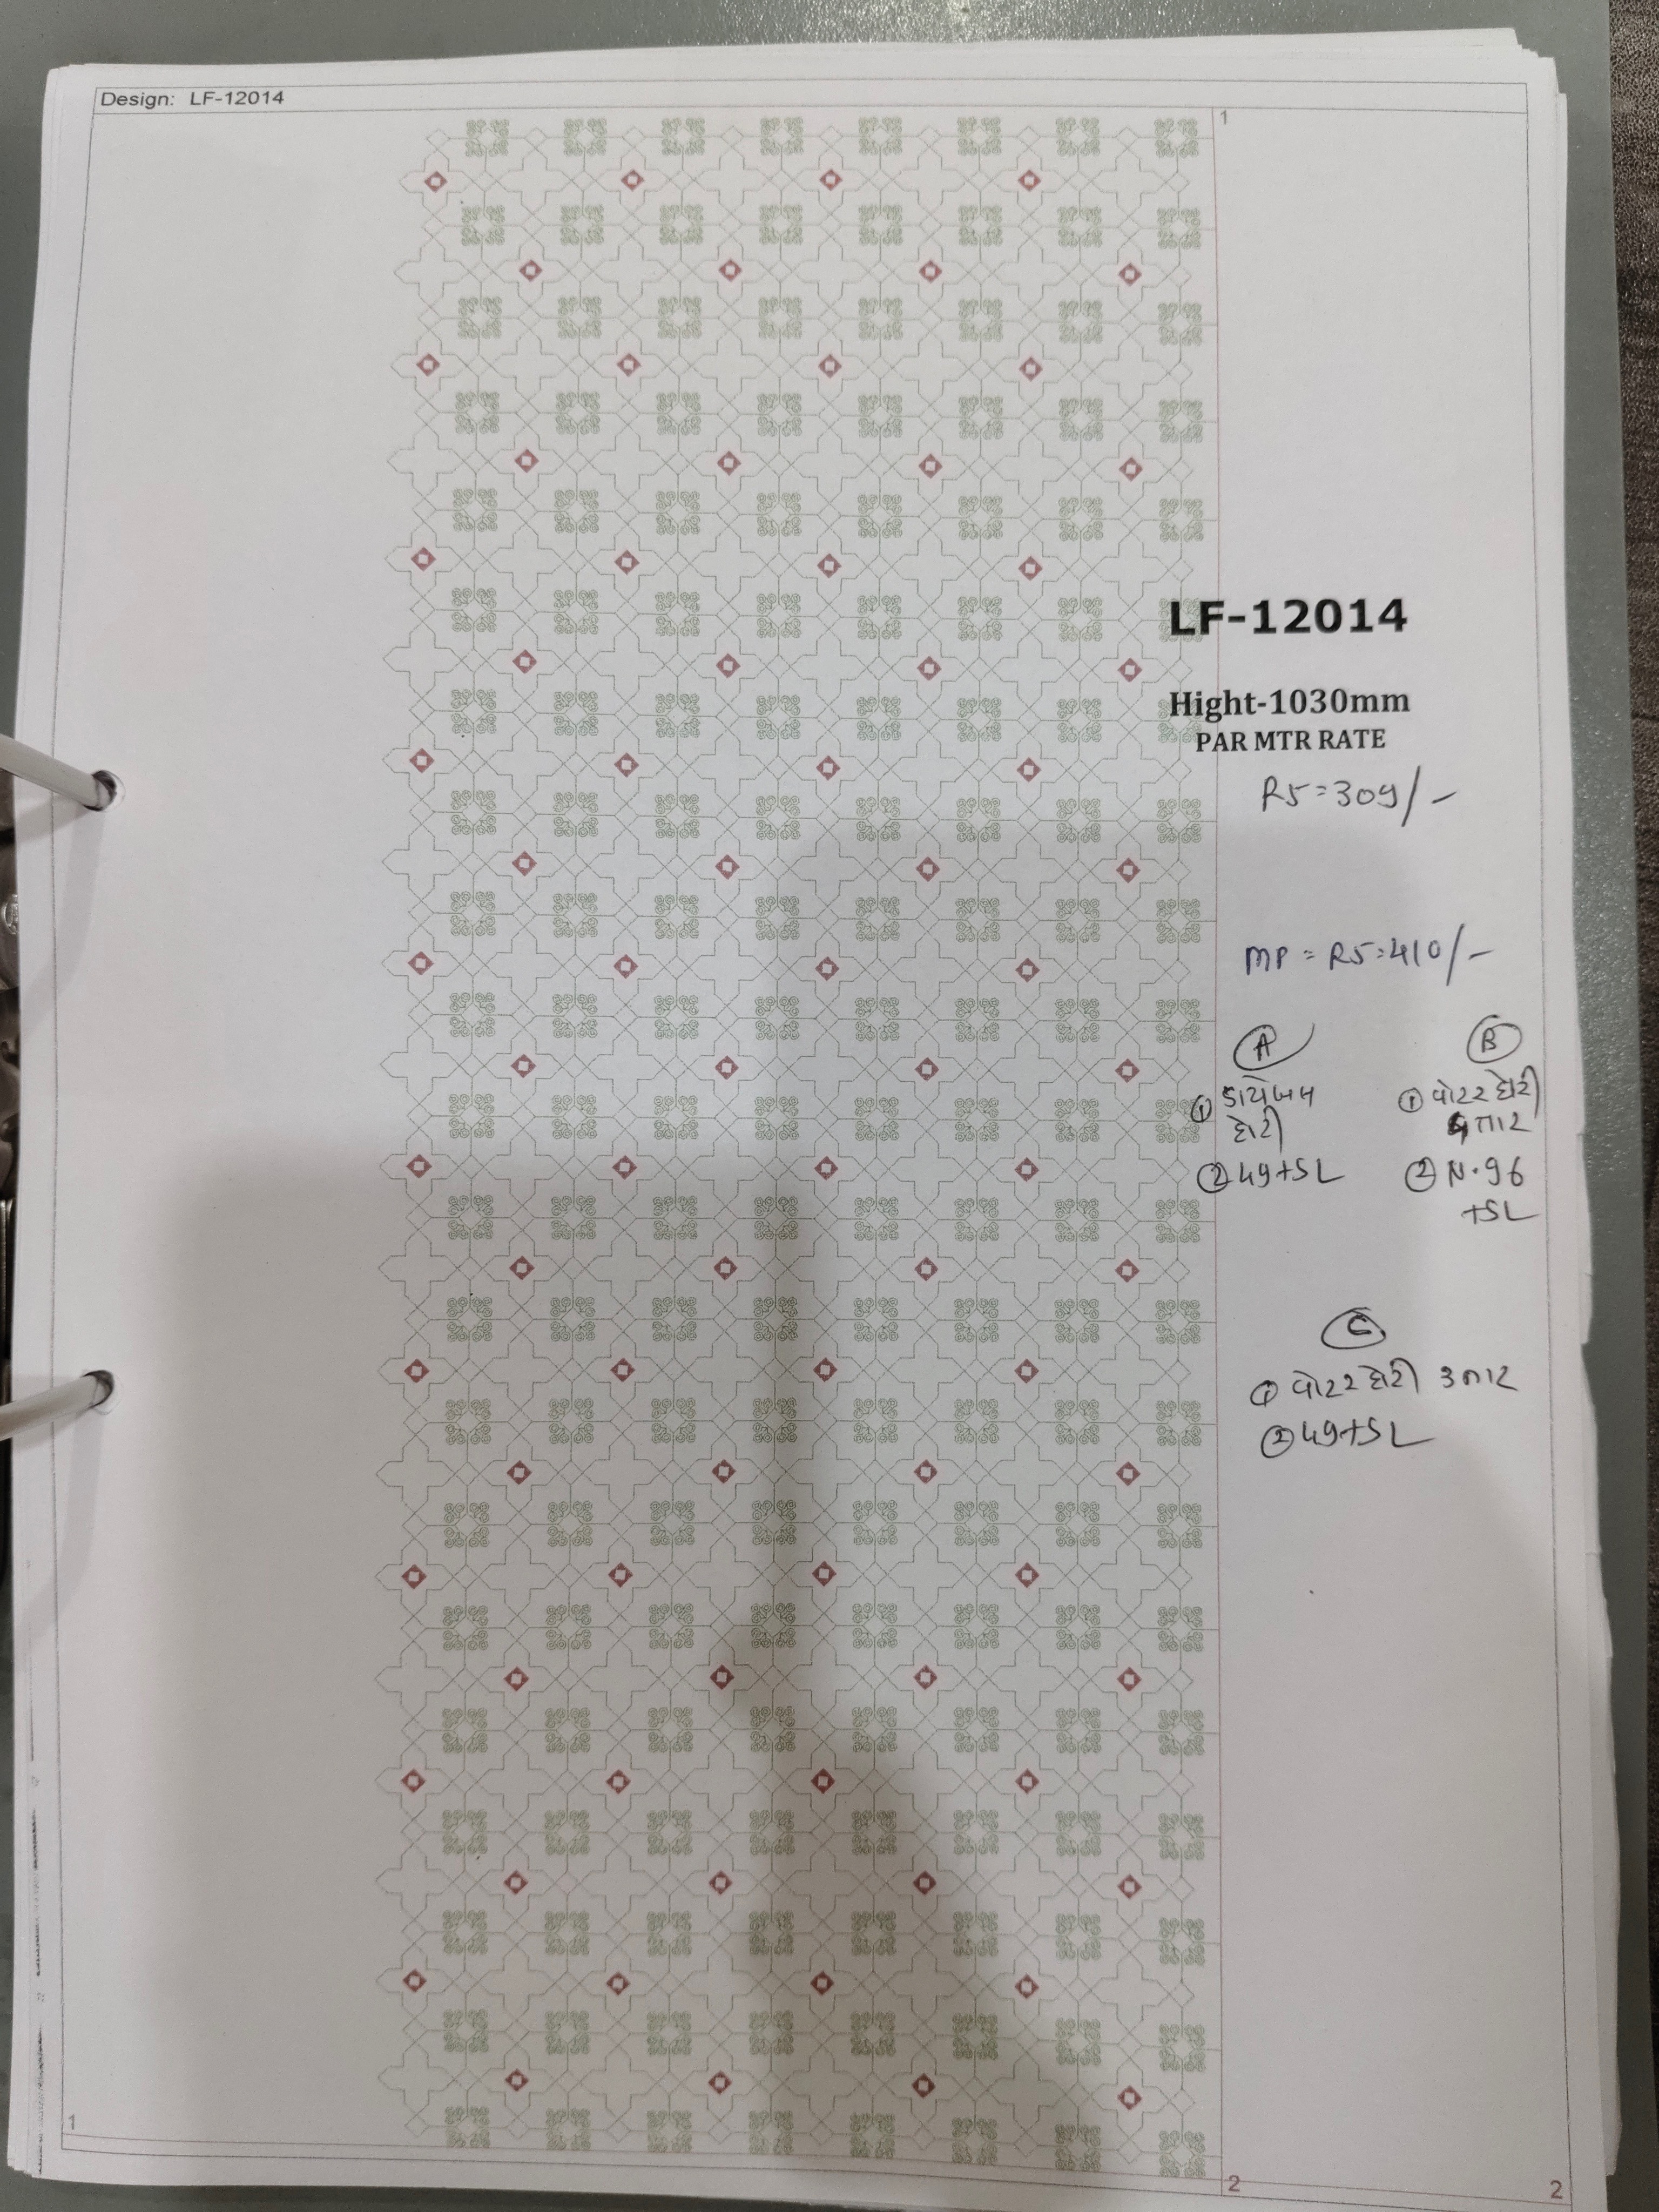 Design: LF-12014
1
LF-12014
Hight-1030mm
PAR MTR RATE
RS=309/-
MP = RS=410/-
A
① ડાયેબલ
દોરી
② 49+SL
B
① વોટર દોરી
4 તાર
② N.96
+SL
C
① વોટર દોરી 3 તાર
② 49+SL
1
2
2